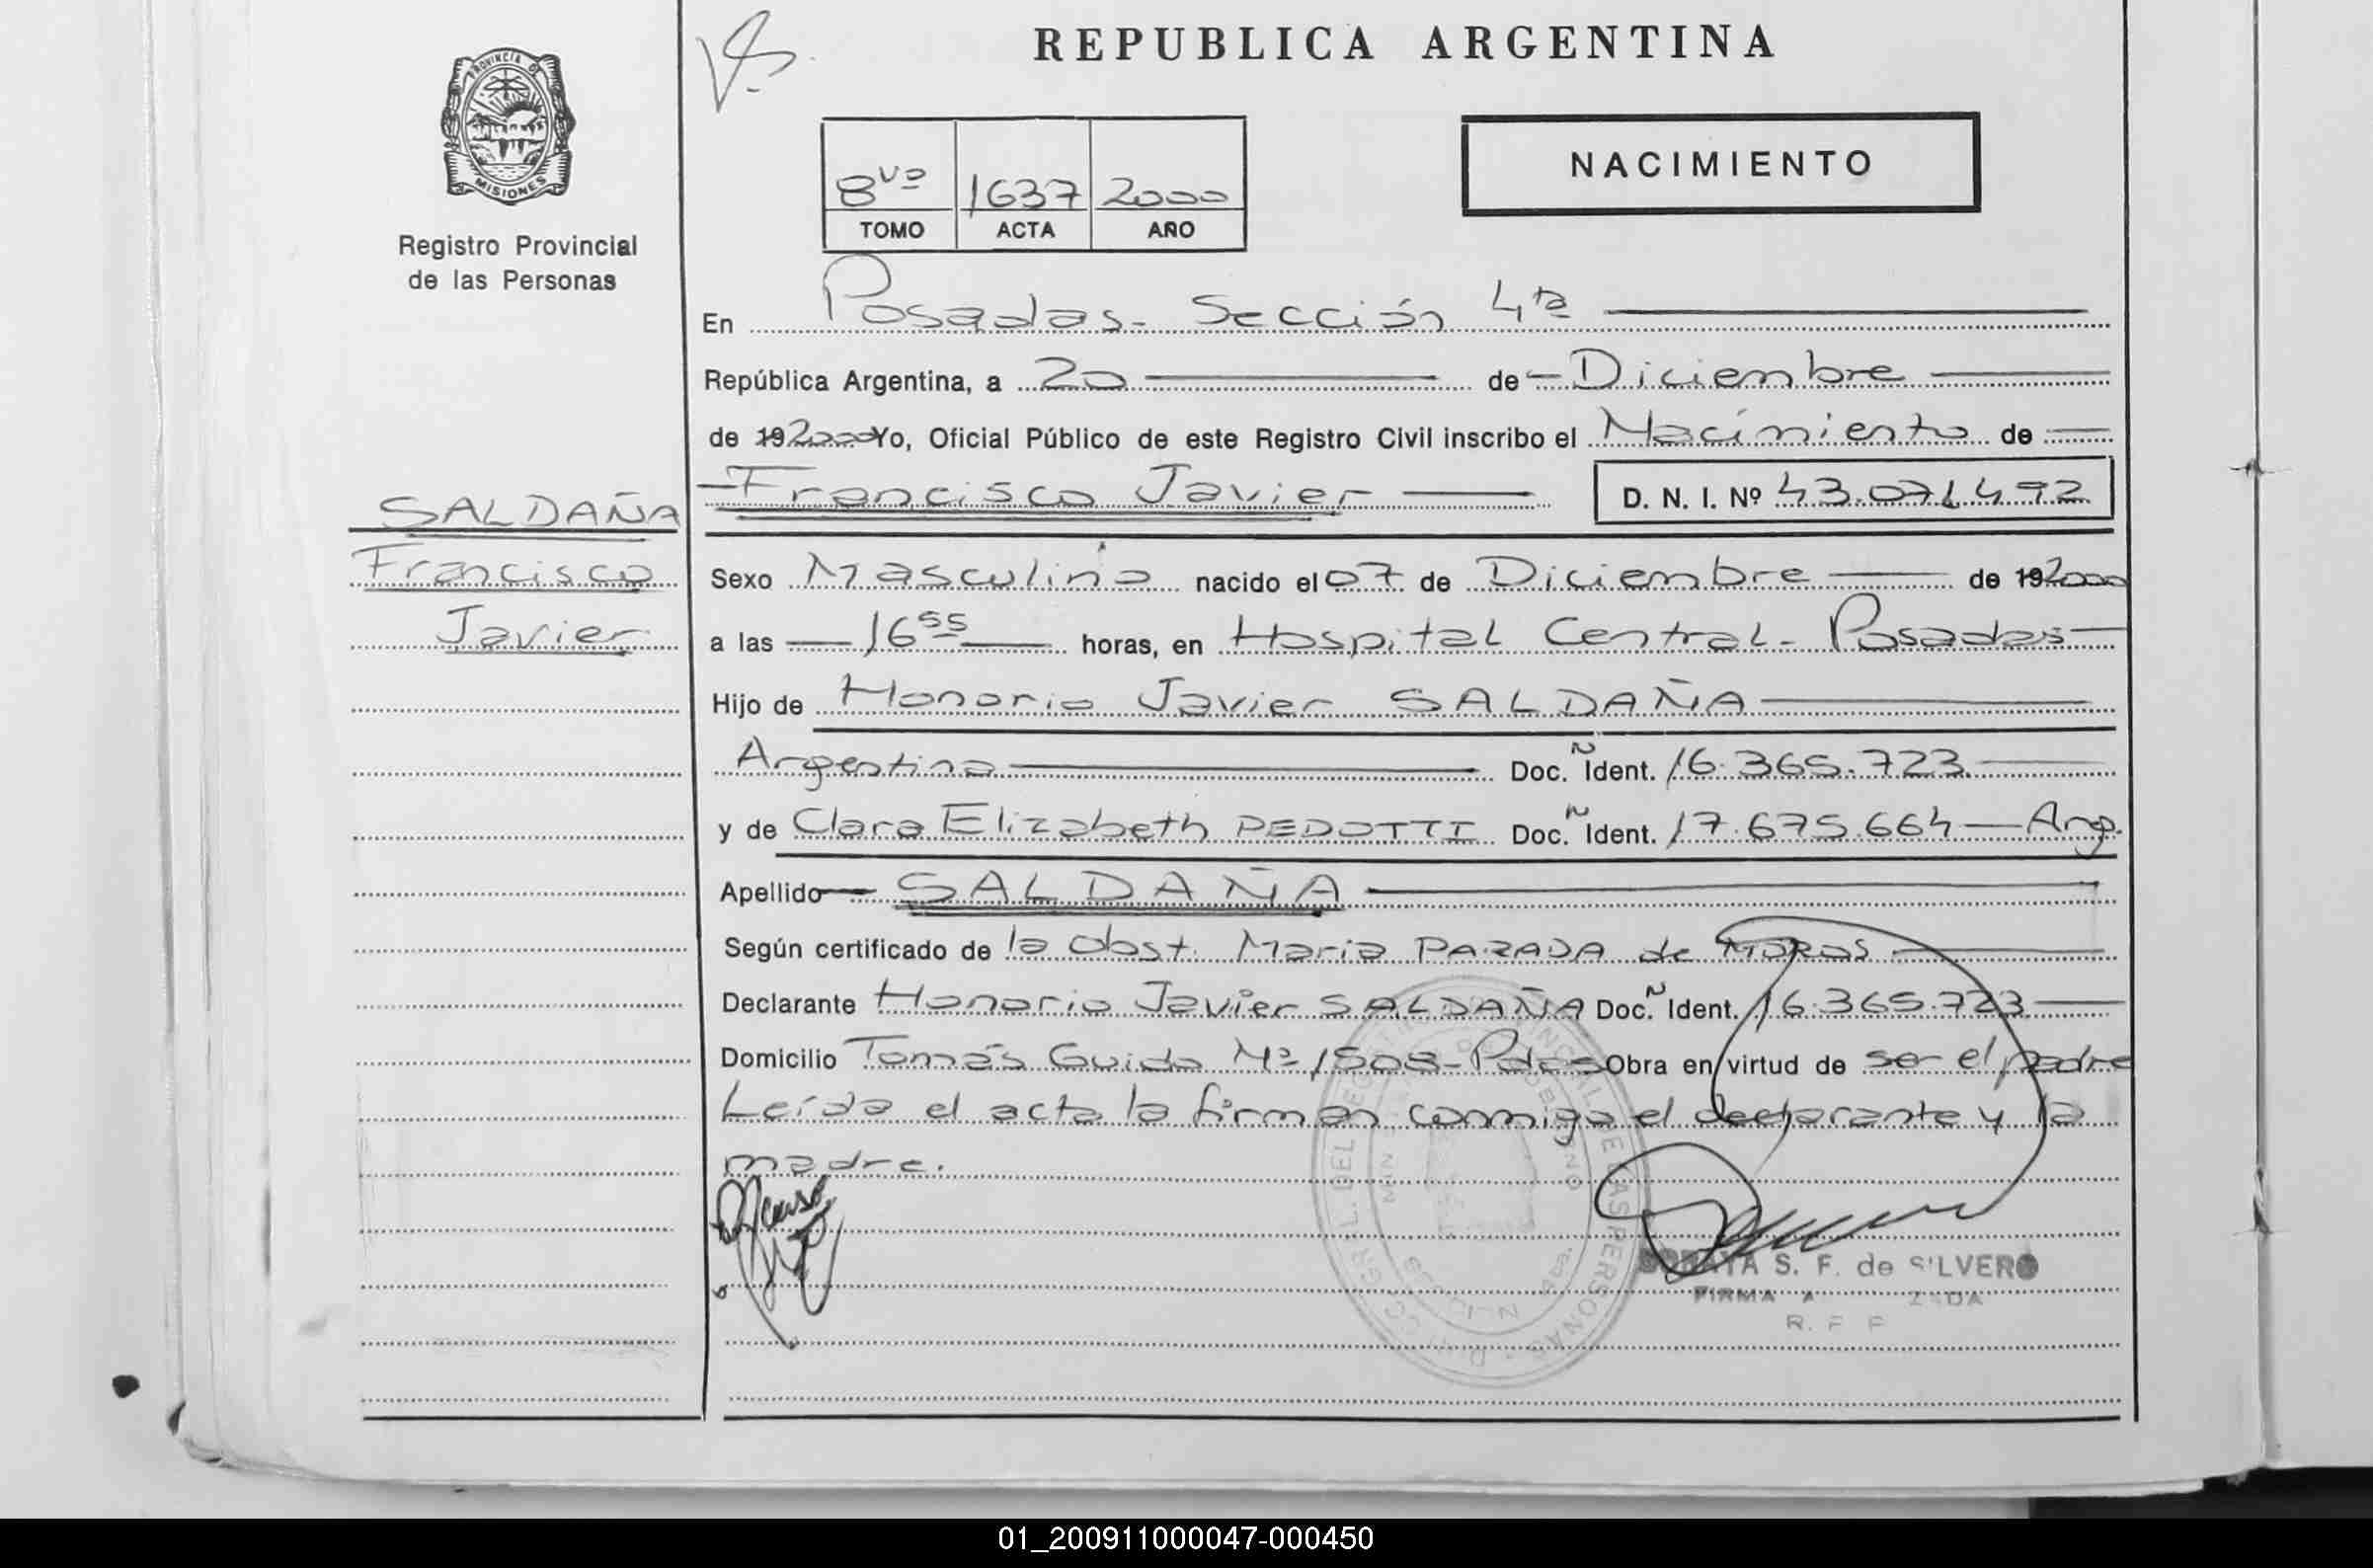 REPUBLICA ARGENTINA
PROVINCIA DE
MISIONES
Registro Provincial
de las Personas
NACIMIENTO
8vo 1637 2000
TOMO ACTA AÑO
En Posadas- Sección 4ta
República Argentina, a 20 de Diciembre
de 19 2000 Yo, Oficial Público de este Registro Civil inscribo el Nacimiento de
Francisco Javier D. N. I. Nº 43.071.492
SALDAÑA
Francisco
Javier
Sexo Masculino nacido el 07 de Diciembre de 19 2000
a las 16 55 horas, en Hospital Central- Posadas
Hijo de Honorio Javier SALDAÑA
Argentina Doc. Ñ Ident. 16.365.723
y de Clara Elizabeth PEDOTTI Doc. Ñ Ident. 17.675.664 - Arg.
Apellido SALDAÑA
Según certificado de la obst. Maria PARADA de MORAS
Declarante Honorio Javier SALDAÑA Doc. Ñ Ident. 16.365.723
Domicilio Tomás Guido Nº 1508- Pdas Obra en virtud de ser el padre
Leída el acta la firman conmigo el declarante y la
madre.
SORAYA S. F. de SILVERO
FIRMA
R.
01_200911000047-000450